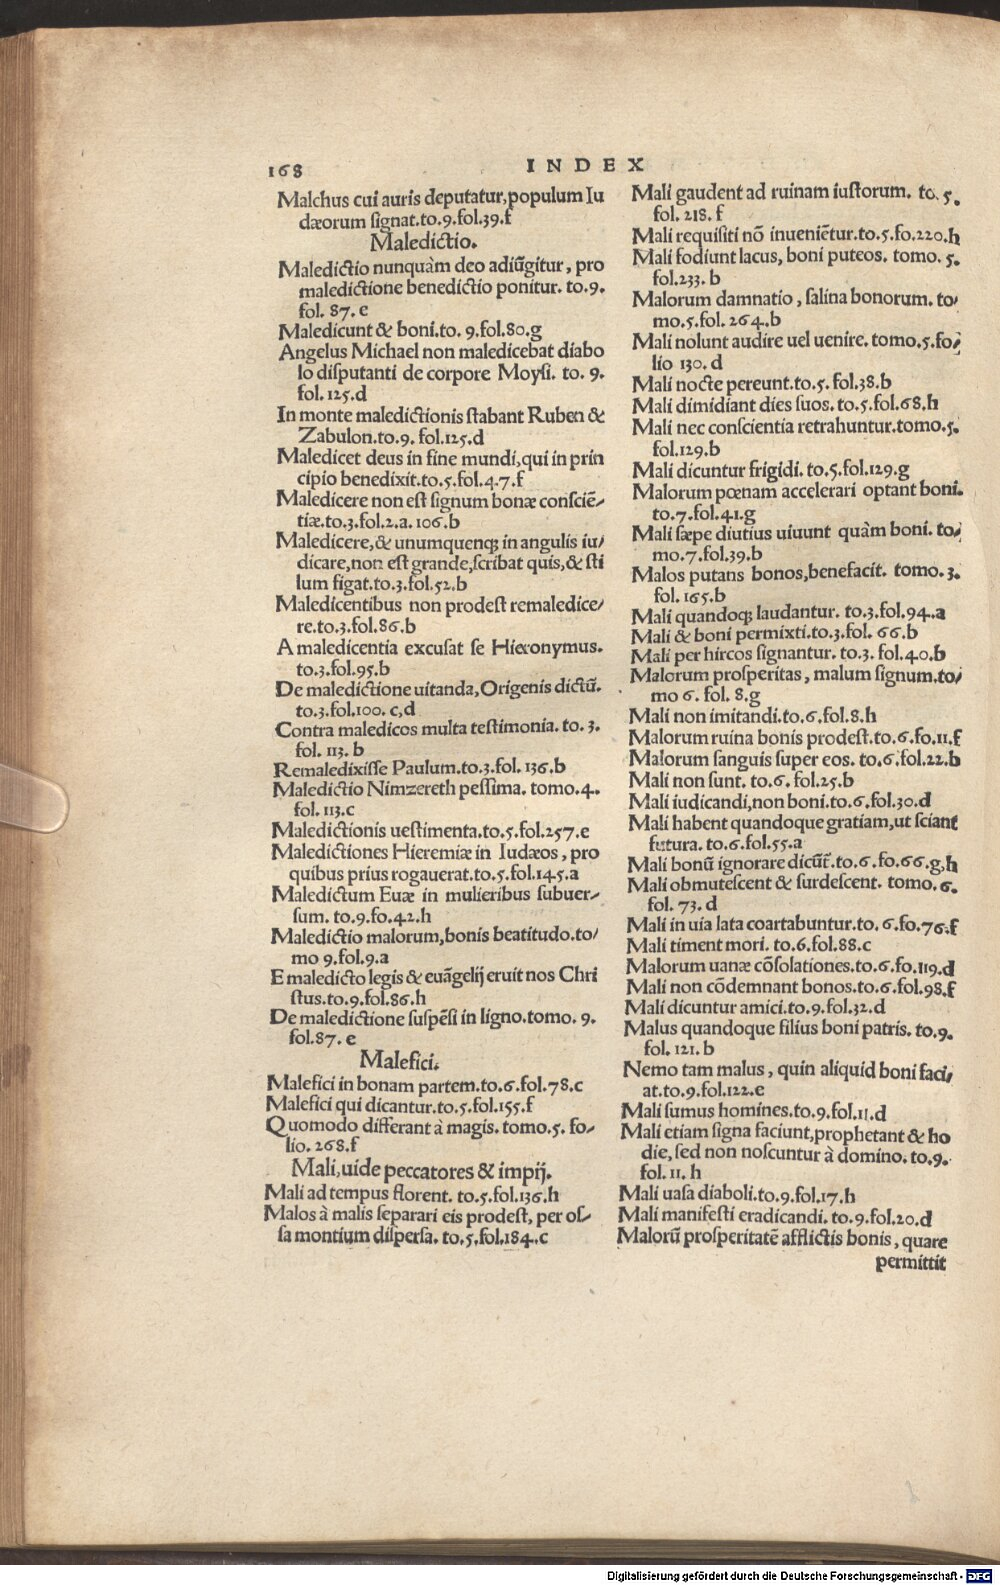 168
INDEX
Malchus cui auris deputatur,populum Iu
dæorum ſignat.to.9.fol.39.f
Maledictio.
Maledictio nunquàm deo adiũgitur, pro
maledictione benedictio ponitur. to.9.
fol. 87. e
Maledicunt & boni.to. 9.fol.80.g
Angelus Michael non maledicebat diabo
lo diſputanti de corpore Moyſi. to. 9.
fol. 125.d
In monte maledictionis ſtabant Ruben &
Zabulon.to.9. fol.125.d
Maledicet deus in fine mundi,qui in prin
cipio benedixit.to.5.fol.47.f
Maledicere non eſt ſignum bonæ conſciẽ-
tiæ.to.3.fol.2.a. 106.b
Maledicere,& unumquenq; in angulis iu/
dicare,non eſt grande,ſcribat quis,& ſti
lum figat.to.3.fol.52.b
Maledicentibus non prodeſt remaledice/
re.to.3.fol.86.b
A maledicentia excuſat ſe Hieronymus.
to.3.fol.95.b
De maledictione uitanda,Origenis dictũ.
to.3.fol.100. c,d
Contra maledicos multa teſtimonia. to. 3.
fol. 113. b
Remaledixiſſe Paulum.to.3.fol. 136.b
Maledictio Nimzereth peſſima. tomo.4.
fol. 113.c
Maledictionis ueſtimenta.to.5.fol.257.e
Maledictiones Hieremiæ in Iudæos, pro
quibus prius rogauerat.to.5.fol.145.a
Maledictum Euæ in mulieribus ſubuer-
ſum. to.9.fo.42.h
Maledictio malorum,bonis beatitudo.to/
mo 9.fol.9.a
E maledicto legis & euãgelij eruit nos Chri
ſtus.to.9.fol.86.h
De maledictione ſuſpẽſi in ligno.tomo. 9.
fol.87. e
Malefici.
Malefici in bonam partem.to.6.fol.78.c
Malefici qui dicantur.to.5.fol.155.f
Quomodo differant à magis. tomo.5. fo-
lio. 268.f
Mali,uide peccatores & impij.
Mali ad tempus florent. to.5.fol.136.h
Malos à malis ſeparari eis prodeſt, per oſ-
ſa montium diſperſa. to.5.fol.184.c
Mali gaudent ad ruinam iuſtorum. to. 5.
fol. 218. f
Mali requiſiti nõ inueniẽtur.to.5.fo.220.h
Mali fodiunt lacus, boni puteos. tomo. 5.
fol.233. b
Malorum damnatio, ſalina bonorum. to/
mo.5.fol. 264.b
Mali nolunt audire uel uenire. tomo.5.fo/
lio 130. d
Mali nocte pereunt.to.5. fol.38.b
Mali dimidiant dies ſuos. to.5.fol.68.h
Mali nec conſcientia retrahuntur.tomo.5.
fol.129.b
Mali dicuntur frigidi. to.5.fol.129.g
Malorum pœnam accelerari optant boni.
to.7.fol.41.g
Mali ſæpe diutius uiuunt quàm boni. to/
mo.7.fol.39.b
Malos putans bonos,benefacit. tomo.3.
fol. 165.b
Mali quandoq; laudantur. to.3.fol.94.a
Mali & boni permixti.to.3.fol. 66.b
Mali per hircos ſignantur. to.3. fol.40.b
Malorum proſperitas, malum ſignum.to/
mo 6. fol. 8.g
Mali non imitandi.to.6.fol.8.h
Malorum ruina bonis prodeſt.to.6.fo.11.f
Malorum ſanguis ſuper eos. to.6.fol.22.b
Mali non ſunt. to.6. fol.25.b
Mali iudicandi,non boni.to.6.fol.30.d
Mali habent quandoque gratiam,ut ſciant
futura. to.6.fol.55.a
Mali bonũ ignorare dicũt̃.to.6.fo.66.g,h
Mali obmuteſcent & ſurdeſcent. tomo.6.
fol. 73. d
Mali in uia lata coartabuntur.to. 6.fo.76.f
Mali timent mori. to.6.fol.88.c
Malorum uanæ cõſolationes.to.6.fo.119.d
Mali non cõdemnant bonos.to.6.fol.98.f
Mali dicuntur amici.to.9.fol.32.d
Malus quandoque filius boni patris. to.9.
fol. 121.b
Nemo tam malus, quin aliquid boni faci/
at.to.9.fol.122.e
Mali ſumus homines.to.9.fol.11.d
Mali etiam ſigna faciunt,prophetant & ho
die,ſed non noſcuntur à domino. to.9.
fol. 11. h
Mali uaſa diaboli.to.9.fol.17.h
Mali manifeſti eradicandi. to.9.fol.20.d
Malorũ proſperitatẽ afflictis bonis, quare
permittit
Digitalisierung gefördert durch die Deutsche Forschungsgemeinschaft - DFG